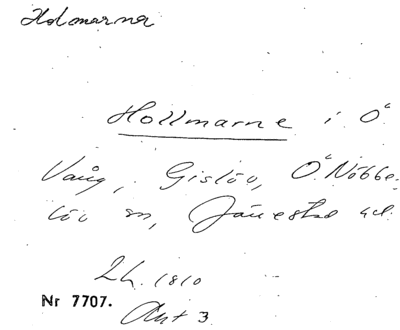 Holmarna
Hollmarne i Ö
Vång, Gislöv, Ö Nöbbe-
löv sn, Järrestad hd.
Lh. 1810
Nr 7707.
Akt 3